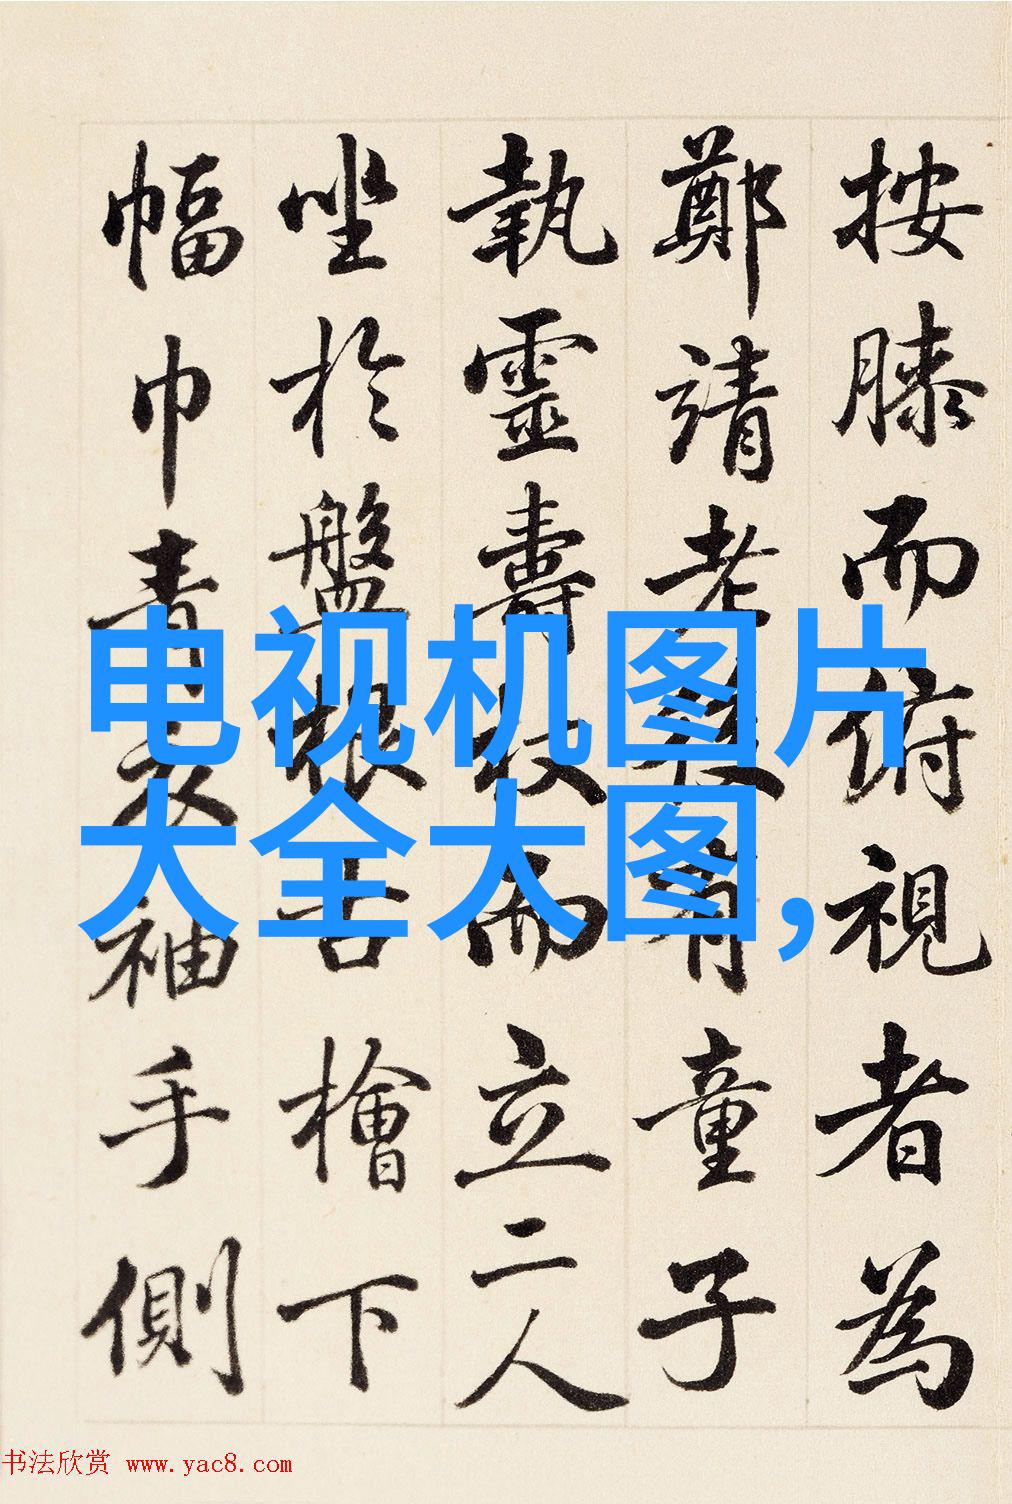 按膝而俯視者為
鄭靖老後有童子
執靈壽杖而立二人
坐於盤根古檜下
幅巾青衣袖手側
电视机图片
大全大图,
书法欣赏 www.yac8.com